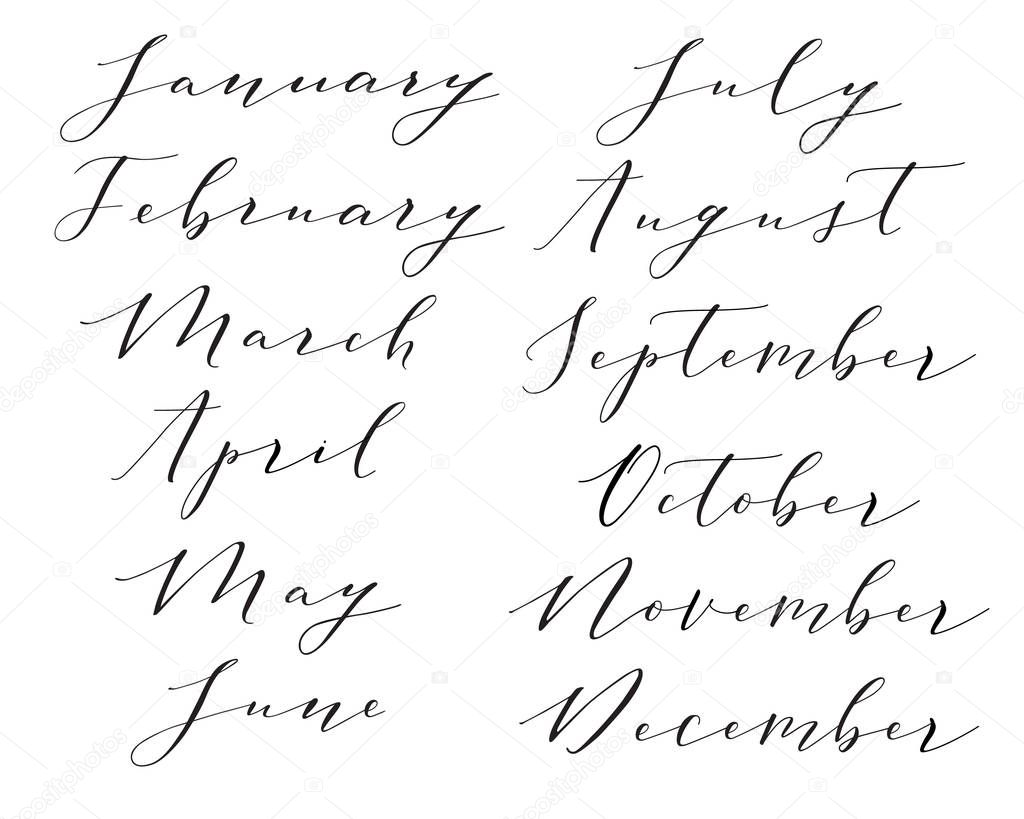 January
February
March
April
May
June
July
August
September
October
November
December
depositphotos